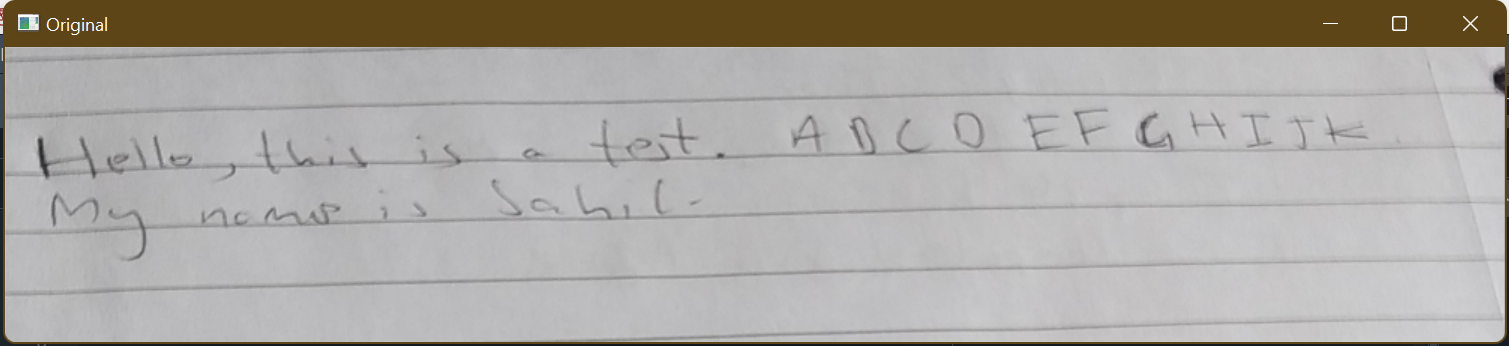 Original
Hello, this is a test. A B C D E F G H I J K
My name is Sahil.